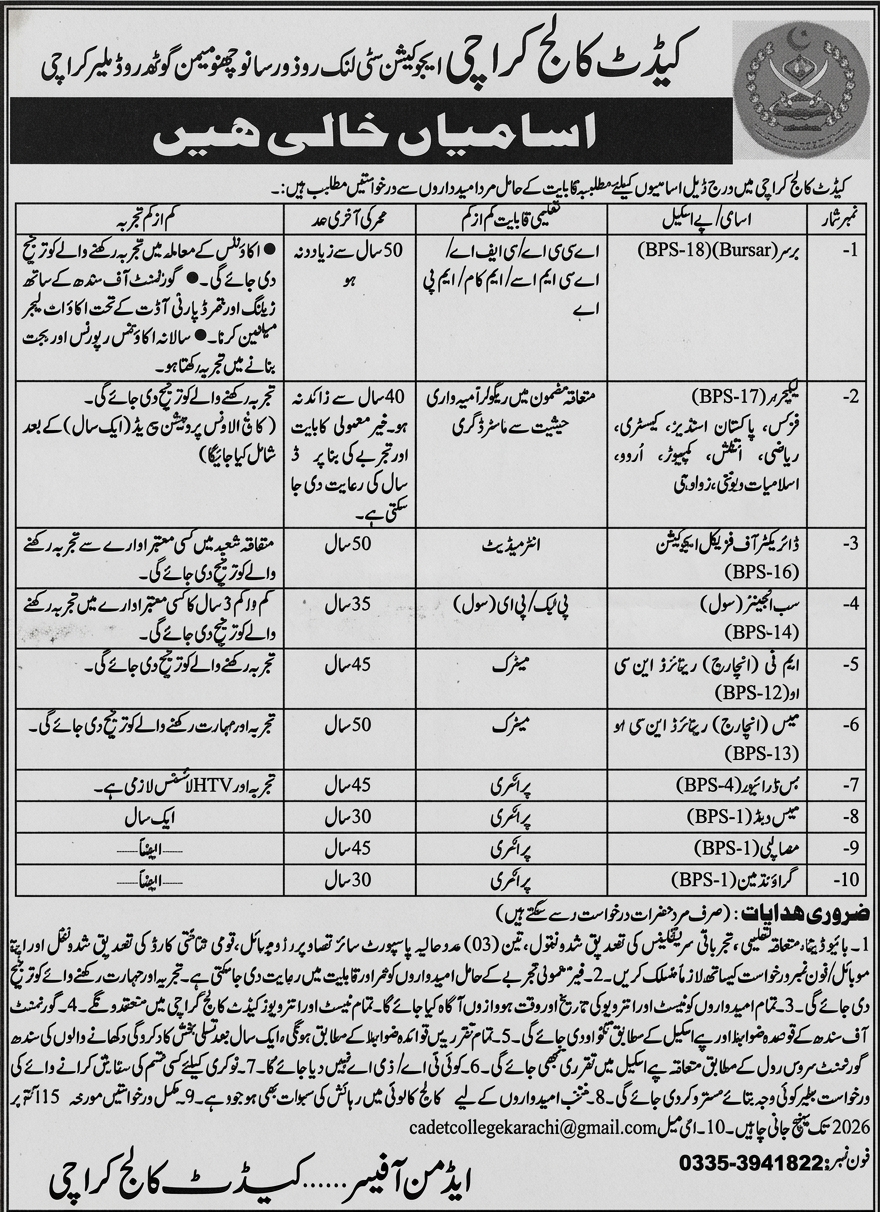 کیڈٹ کالج کراچی ایجوکیشن سٹی لنک روڈ ورسانو چھنو میمن گوٹھ روڈ ملیر کراچی
اسامیاں خالی ھیں
کیڈٹ کالج کراچی میں درج ذیل اسامیوں کیلئے مطلوبہ قابلیت کے حامل مرد امیدواروں سے درخواستیں مطلب ہیں:۔
نمبر شمار اسامی/پے اسکیل تعلیمی قابلیت کم از کم عمر کی آخری حد کم از کم تجربہ
1- برسر(Bursar)(BPS-18) اے سی سی اے/سی ایف اے/ 50 سال سے زیادہ نہ ● اکاؤنٹس کے معاملہ میں تجربہ رکھنے والے کو ترجیح
اے سی ایم اے/ایم کام/ایم پی ہو دی جائے گی۔● گورنمنٹ آف سندھ کے ساتھ
اے اور تھرڈ پارٹی آڈٹ کے تحت
کرنا۔● سالانہ اکاؤنٹس رپورٹس اور بجٹ
بنانے میں تجربہ رکھتا ہو۔
2- لیکچرر(BPS-17) متعلقہ مضمون میں ریگولر امیدواری 40 سال سے زائد نہ تجربہ رکھنے والے کو ترجیح دی جائے گی۔
فزکس، پاکستان اسٹڈیز، کیمسٹری، حیثیت سے ماسٹر ڈگری ہو۔غیر معمولی قابلیت (کالج الاؤنس پروبیشن پیریڈ (ایک سال) کے بعد
ریاضی، انگلش، کمپیوٹر، اُردو، اور تجربے کی بنا پر 3 شامل کیا جائیگا)
اسلامیات و زوالوجی سال کی رعایت دی جا
سکتی ہے۔
3- ڈائریکٹر آف فزیکل ایجوکیشن انٹرمیڈیٹ 50 سال متعلقہ شعبہ میں کسی معتبر ادارے سے تجربہ رکھنے
(BPS-16) والے کو ترجیح دی جائے گی۔
4- سب انجینئر (سول) پی ٹیک/پی ای (سول) 35 سال کم از کم 3 سال کا کسی معتبر ادارے میں تجربہ رکھنے
(BPS-14) والے کو ترجیح دی جائے گی۔
5- ایم ٹی (انچارج) ریٹائرڈ این سی میٹرک 45 سال تجربہ رکھنے والے کو ترجیح دی جائے گی۔
او(BPS-12)
6- میس (انچارج) ریٹائرڈ این سی او میٹرک 50 سال تجربہ اور مہارت رکھنے والے کو ترجیح دی جائے گی۔
(BPS-13)
7- بس ڈرائیور(BPS-4) پرائمری 45 سال تجربہ اور HTV لائسنس لازمی ہے۔
8- میس (BPS-1) پرائمری 30 سال ایک سال
9- (BPS-1) پرائمری 45 سال ایضاً
10- گراؤنڈ مین(BPS-1) پرائمری 30 سال ایضاً
ضروری ھدایات: (صرف مرد حضرات درخواست دے سکتے ہیں)
1۔ بائیو ڈیٹا، متعلقہ تعلیمی، تجرباتی سرٹیفکیٹس کی تصدیق شدہ نقول، تین (03) عدد حالیہ پاسپورٹ سائز تصاویر، قومی شناختی کارڈ کی تصدیق شدہ نقل اور اپنا
موبائل/فون نمبر درخواست کیساتھ لازماً منسلک کریں۔2۔غیر معمولی تجربے کے حامل امیدواروں کو عمر اور قابلیت میں رعایت دی جا سکتی ہے۔تجربہ اور مہارت رکھنے والے کو ترجیح
دی جائے گی۔3۔تمام امیدواروں کو ٹیسٹ اور انٹرویو کی تاریخ اور وقت آگاہ کیا جائے گا۔تمام ٹیسٹ اور انٹرویوز کیڈٹ کالج کراچی میں منعقد ہونگے۔4۔گورنمنٹ
آف سندھ کے ضوابط اور پے اسکیل کے مطابق تنخواہ دی جائے گی۔5۔تمام تقرریں قواعد و ضوابط کے مطابق ہونگی، ایک سال بعد تسلی بخش کارکردگی دکھانے والوں کی سندھ
گورنمنٹ سروس رول کے مطابق متعلقہ پے اسکیل میں تقرری کی جائے گی۔6۔کوئی ٹی اے/ڈی اے نہیں دیا جائے گا۔7۔نوکری کیلئے کسی قسم کی سفارش کرانے والے کی
درخواست بغیر کوئی وجہ بتائے مسترد کر دی جائے گی۔8۔منتخب امیدواروں کے لیے کالج کالونی میں رہائش کی سہولت بھی موجود ہے۔9۔مکمل درخواستیں مورخہ 15 اکتوبر
2026 تک پہنچ جانی چاہیں۔10۔ای میل cadetcollegekarachi@gmail.com
فون نمبر: 0335-3941822
ایڈمن آفیسر......کیڈٹ کالج کراچی